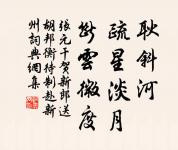 耿斜河
疏星淡月
斷雲微度
張元干賀新郎送
胡邦衡待制赴新
州詞典網集